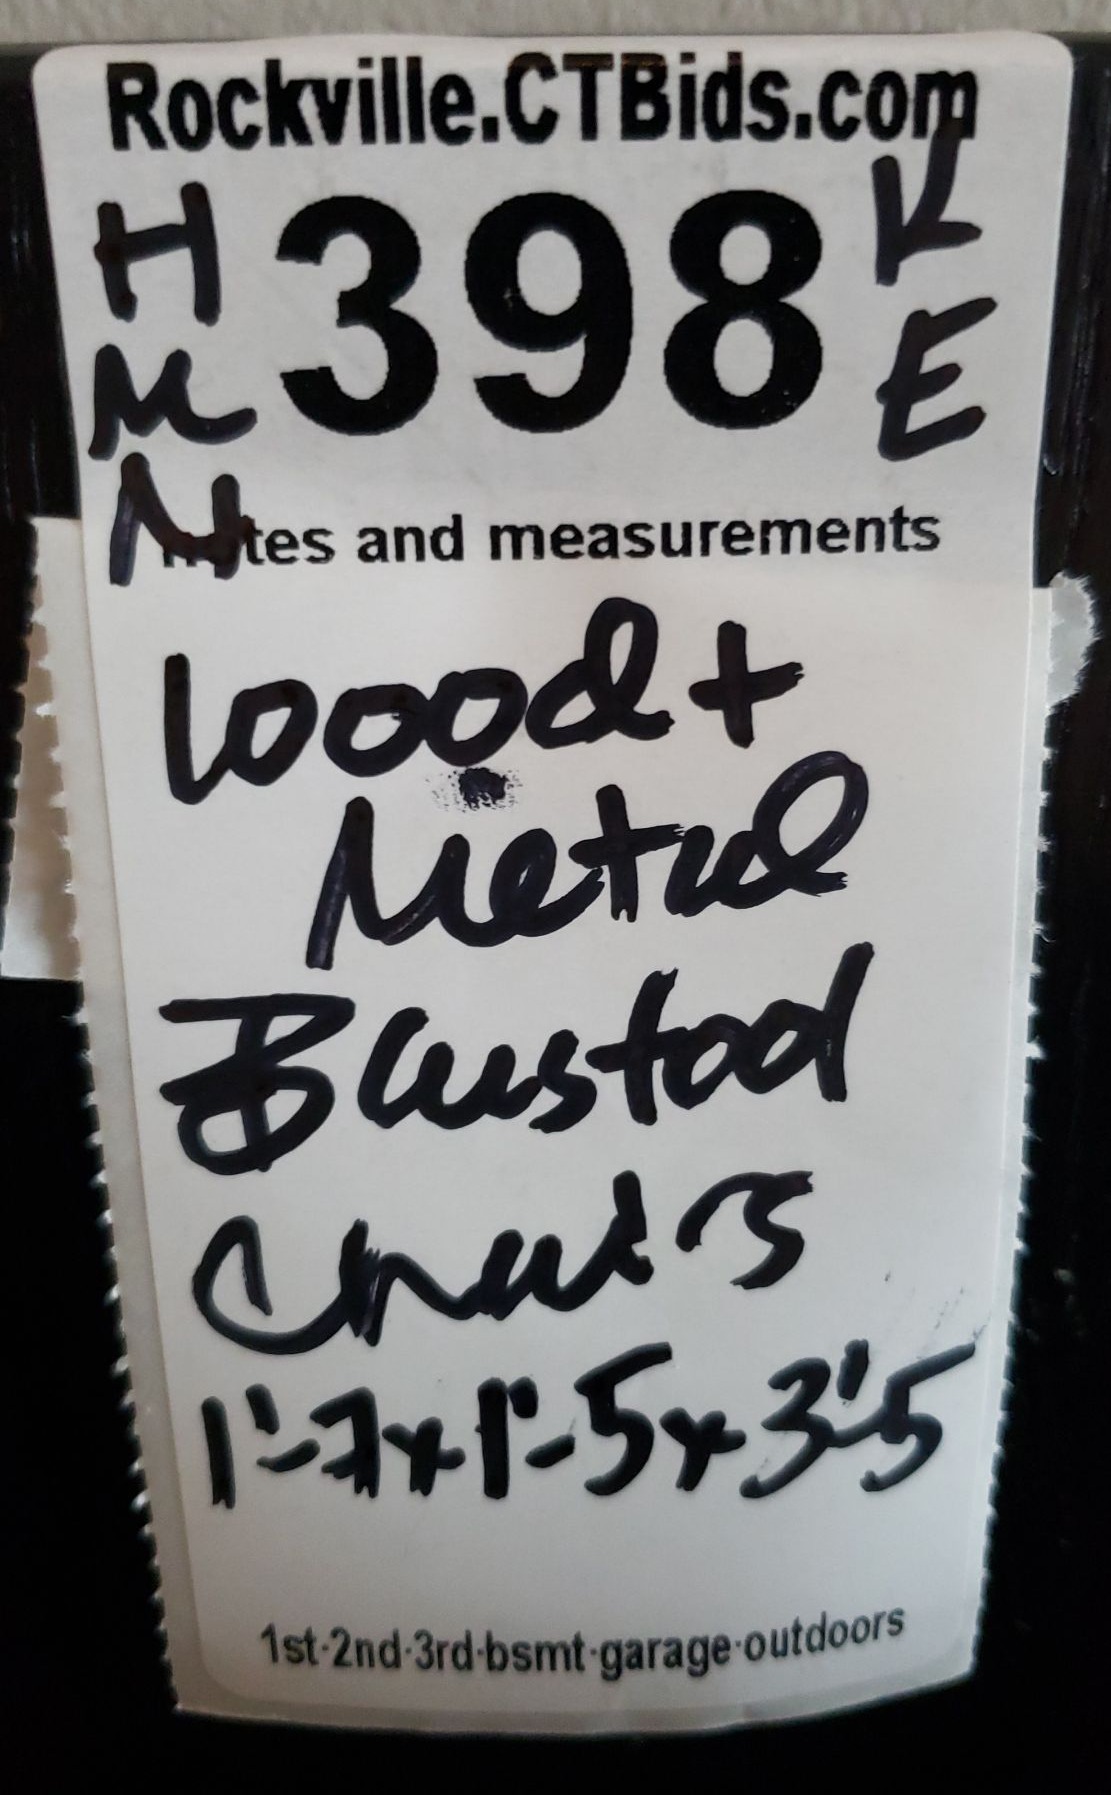 Rockville.CTBids.com
H 398 K
M E
N tes and measurements
Wood +
Metal
Barstool
Chairs
1'-7x1'-5x3'5
1st·2nd·3rd·bsmt·garage·outdoors